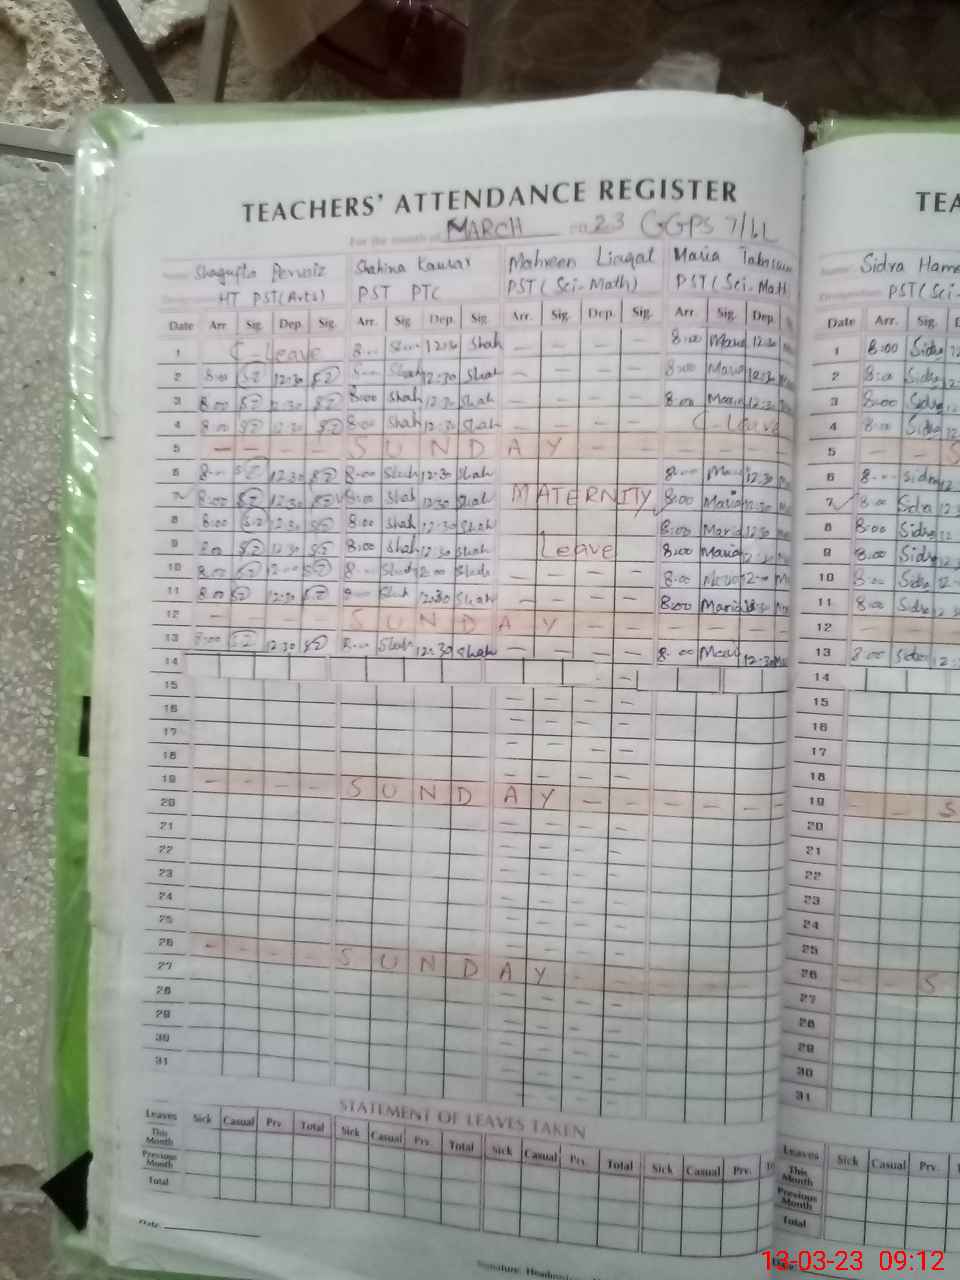 TEACHERS' ATTENDANCE REGISTER
For the month of MARCH 2023 GGPS 7/1L
TEA
Shagufta Perveiz Shahina Kausar Mahreen Liaqat Maria Tabassum Sidra
HT PST (Arts) PST PTC PST (Sci-Math) PST (Sci-Math PST (Sci-
Date Arr. Sig. Dep. Sig. Arr. Sig. Dep. Sig. Arr. Sig. Dep. Sig. Arr. Sig. Dep. Date Arr. Sig. D
1 C-Leave 8:00 Shah 12:30 Shah - - - - 8:00 Maria 12:30 1 8:00 Sidra 12
2 8:00 SP 12:30 SP Shah 12:30 Shah - - - - 8:00 Maria 12:30 2 8:00 Sidra
3 8:00 12:30 8:00 Shah 12:30 Shah - - - - 8:00 Maria 12:30 3 8:00 Sidra
4 8:00 12:30 8:00 Shah 12:30 Shah - - - - C-Leave 4 8:00 Sidra
5 - - - - S U N D A Y - - - - - 5 - - S
6 8:00 12:30 8:00 Shah 12:30 Shah 8:00 Maria 12:30 6 8:00 Sidra 12
7 8:00 12:30 8:00 Shah 12:30 Shah MATERNITY 8:00 Maria 12:30 7 8:00 Sidra 12
8 8:00 12:30 8:00 Shah 12:30 Shah 8:00 Maria 12:30 8 8:00 Sidra
9 8:00 12:30 8:00 Shah 12:30 Shah Leave 8:00 Maria 12:30 9 8:00 Sidra 12
10 8:00 12:00 8:00 Shah 12:00 Shah - - - - 8:00 Maria 12:00 10 8:00 Sidra
11 8:00 12:30 8:00 Shah 12:30 Shah - - - - 8:00 Maria 12:30 11 8:00 Sidra
12 - - - - S U N D A Y - - - - - 12 - -
13 8:00 12:30 8:00 Shah 12:30 Shah - - - - 8:00 Maria 12:30 13 8:00 Sidra 12
14 14
15 15
16 16
17 17
18 18
19 - - - - S U N D A Y - - - - - 19 - - S
20 20
21 21
22 22
23 23
24 24
25 25
26 - - - - S U N D A Y - - - - - 26 - - S
27 27
28 28
29 29
30 30
31 31
STATEMENT OF LEAVES TAKEN
Leaves Sick Casual Prv. Total Sick Casual Prv. Total Sick Casual Prv. Total Sick Casual Prv. Leaves Sick Casual Prv.
This Month This Month
Previous Month Previous Month
Total Total
Date.
Signature:
13-03-23 09:12